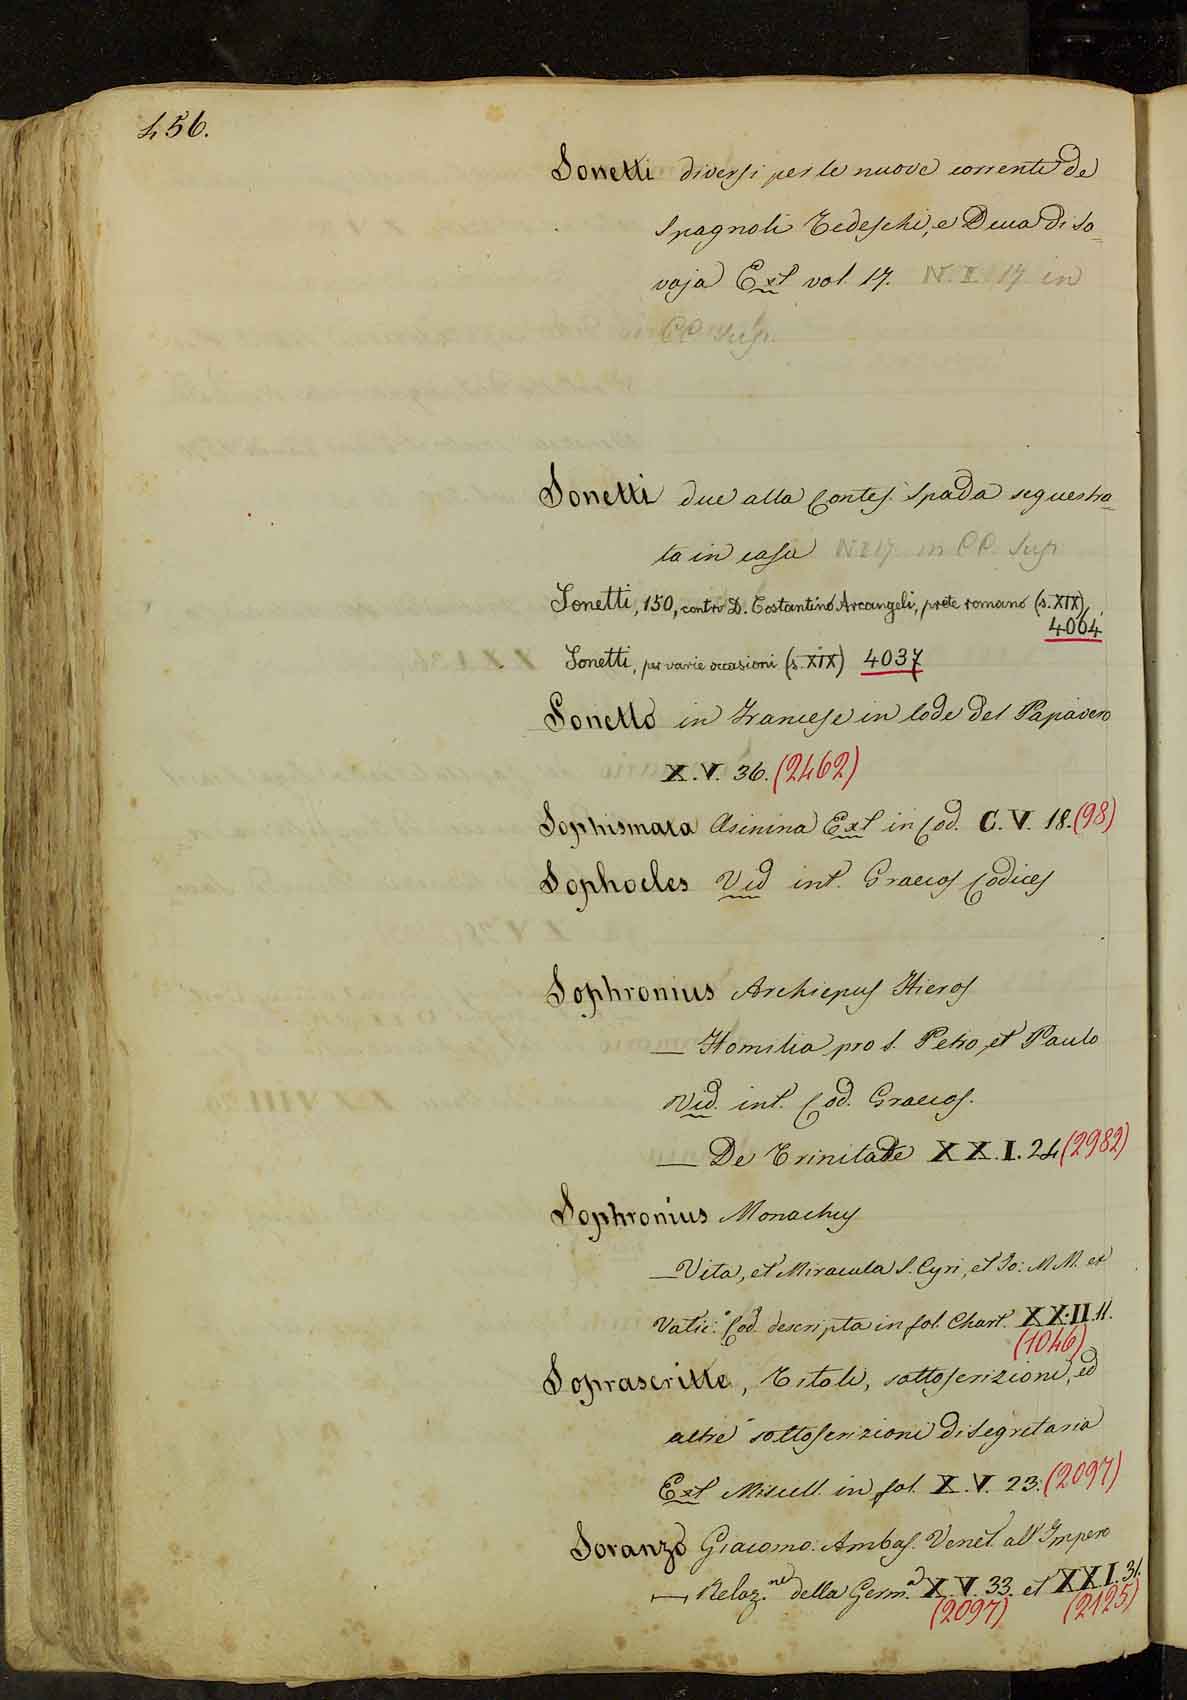 456.
Sonetti diversi per le nuove correnti de
Spagnoli Tedeschi, e Duca di Sa=
voja Ext vol. 17. N. I. 17 in
CC. Sup.
Sonetti due alla Contes. Spada sequestra=
ta in casa N. I 17. in CC. Sup
Sonetti, 150, contro D. Costantino Arcangeli, prete romano (s. XIX)
4064
Sonetti, per varie occasioni (s. XIX) 4037
Sonetto in Francese in lode del Papavero
X. V. 36. (2462)
Sophismata Asinina Ext in Cod. C. V. 18. (98)
Sophocles Vid int. Graecos Codices
Sophronius Archiepus Hieros
— Homilia pro S. Petro, et Paulo
Vid. int. Cod. Graecos.
— De Trinitate XX. I. 24 (2982)
Sophronius Monachus
— Vita, et Miracula S. Cyri, et Jo: M M. ex
Vatic: Cod. descripta in fol. Chart. XX. II. 11.
(1046)
Soprascritte, Titoli, sottoscrizioni, ed
altre sottoscrizioni di Segretaria
Ext Miscell. in fol. X. V. 23. (2097)
Soranzo Giacomo. Ambas. Venet. all' Impero
— Relaz.ne della Germ.a X. V. 33. et XXI. 31.
(2097) (2125)